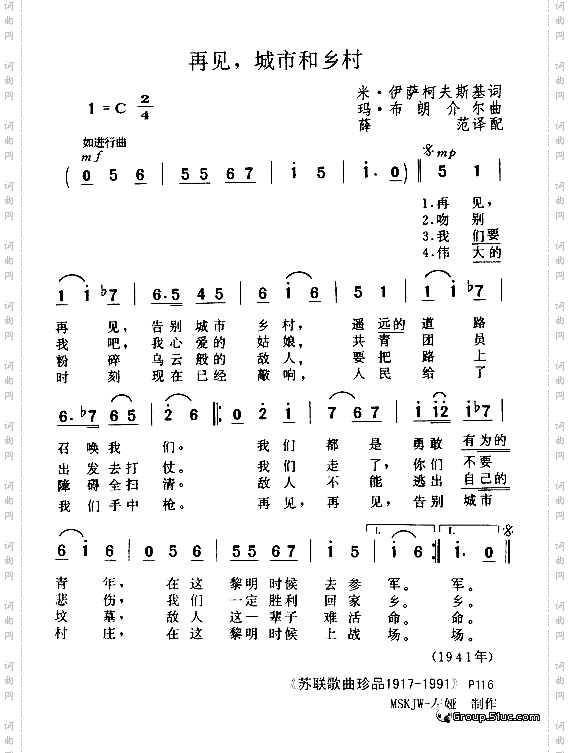 再见，城市和乡村
米·伊萨柯夫斯基词
1=C 2/4
玛·布朗介尔曲
薛 范译配
如进行曲
mf
mp
( 0 5 6 | 5 5 5 6 7 | i 5 | i· 0 ) | 5 1 |
1.再 见，
2.吻 别
3.我 们要
4.伟 大的
1 i ♭7 | 6·5 4 5 | 6 i 6 | 5 1 | 1 i ♭7 |
再 见，告别 城市 乡 村， 遥 远的 道 路
我 吧，我心 爱的 姑 娘， 共 青 团 员
粉 碎 乌云 般的 敌 人， 要 把 路 上
时 刻 现在 已经 敲 响， 人 民 给 了
6·♭7 6 5 | 2 6 :| 0 2 i | 7 6 7 | i i2 | i ♭7 |
召 唤 我 们。 我 们 都 是 勇敢 有为的
出 发 去 打 仗。 我 们 走 了，你们 不要
障 碍 全 扫 清。 敌 人 不 能 逃出 自己的
我 们 手 中 枪。 再 见，再 见，告别 城市
6 i 6 | 0 5 6 | 5 5 6 7 | i 5 | i 6 :| i· 0 ‖
青 年， 在 这 黎明 时候 去 参 军。 军。
悲 伤，我 们 一定 胜利 回 家 乡。 乡。
坟 墓，敌 人 这一 辈子 难 活 命。 命。
村 庄，在 这 黎明 时候 上 战 场。 场。
(1941年)
《苏联歌曲珍品1917-1991》 P116
MSKJW-左娅 制作
Group.51uc.com
词曲网